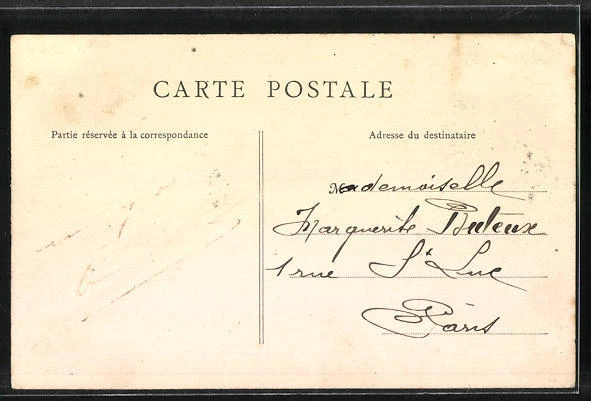 CARTE POSTALE
Partie réservée à la correspondance
Adresse du destinataire
Mademoiselle
Marguerite Buteux
1 rue St Luc
Paris